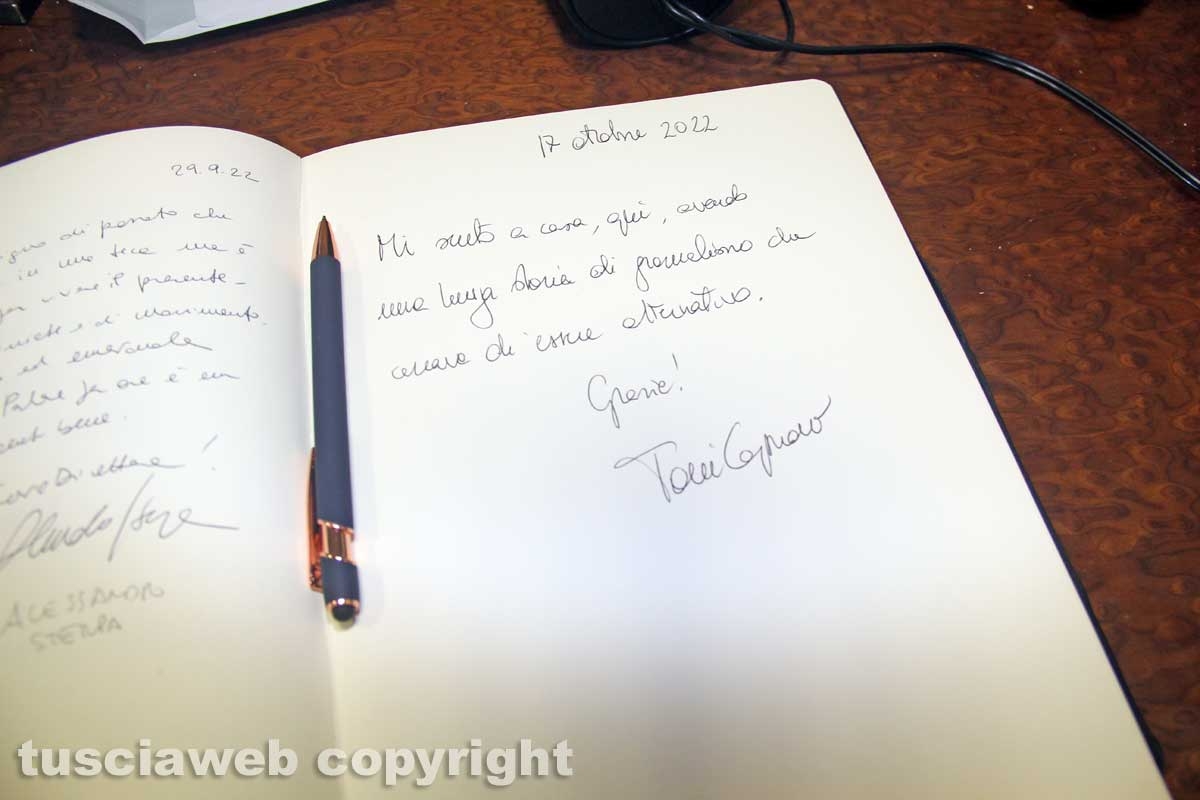 29.9.22
di passato che
in una teca ma è
vivere il presente -
e di movimento.
ed
è un
bene.
Direttore!
ALESSANDRO
STERPA
17 ottobre 2022
Mi sento a casa, qui, avendo
una lunga storia di giornalismo che
cercava di essere alternativo.
Grazie!
Toni Capuozzo
tusciaweb copyright